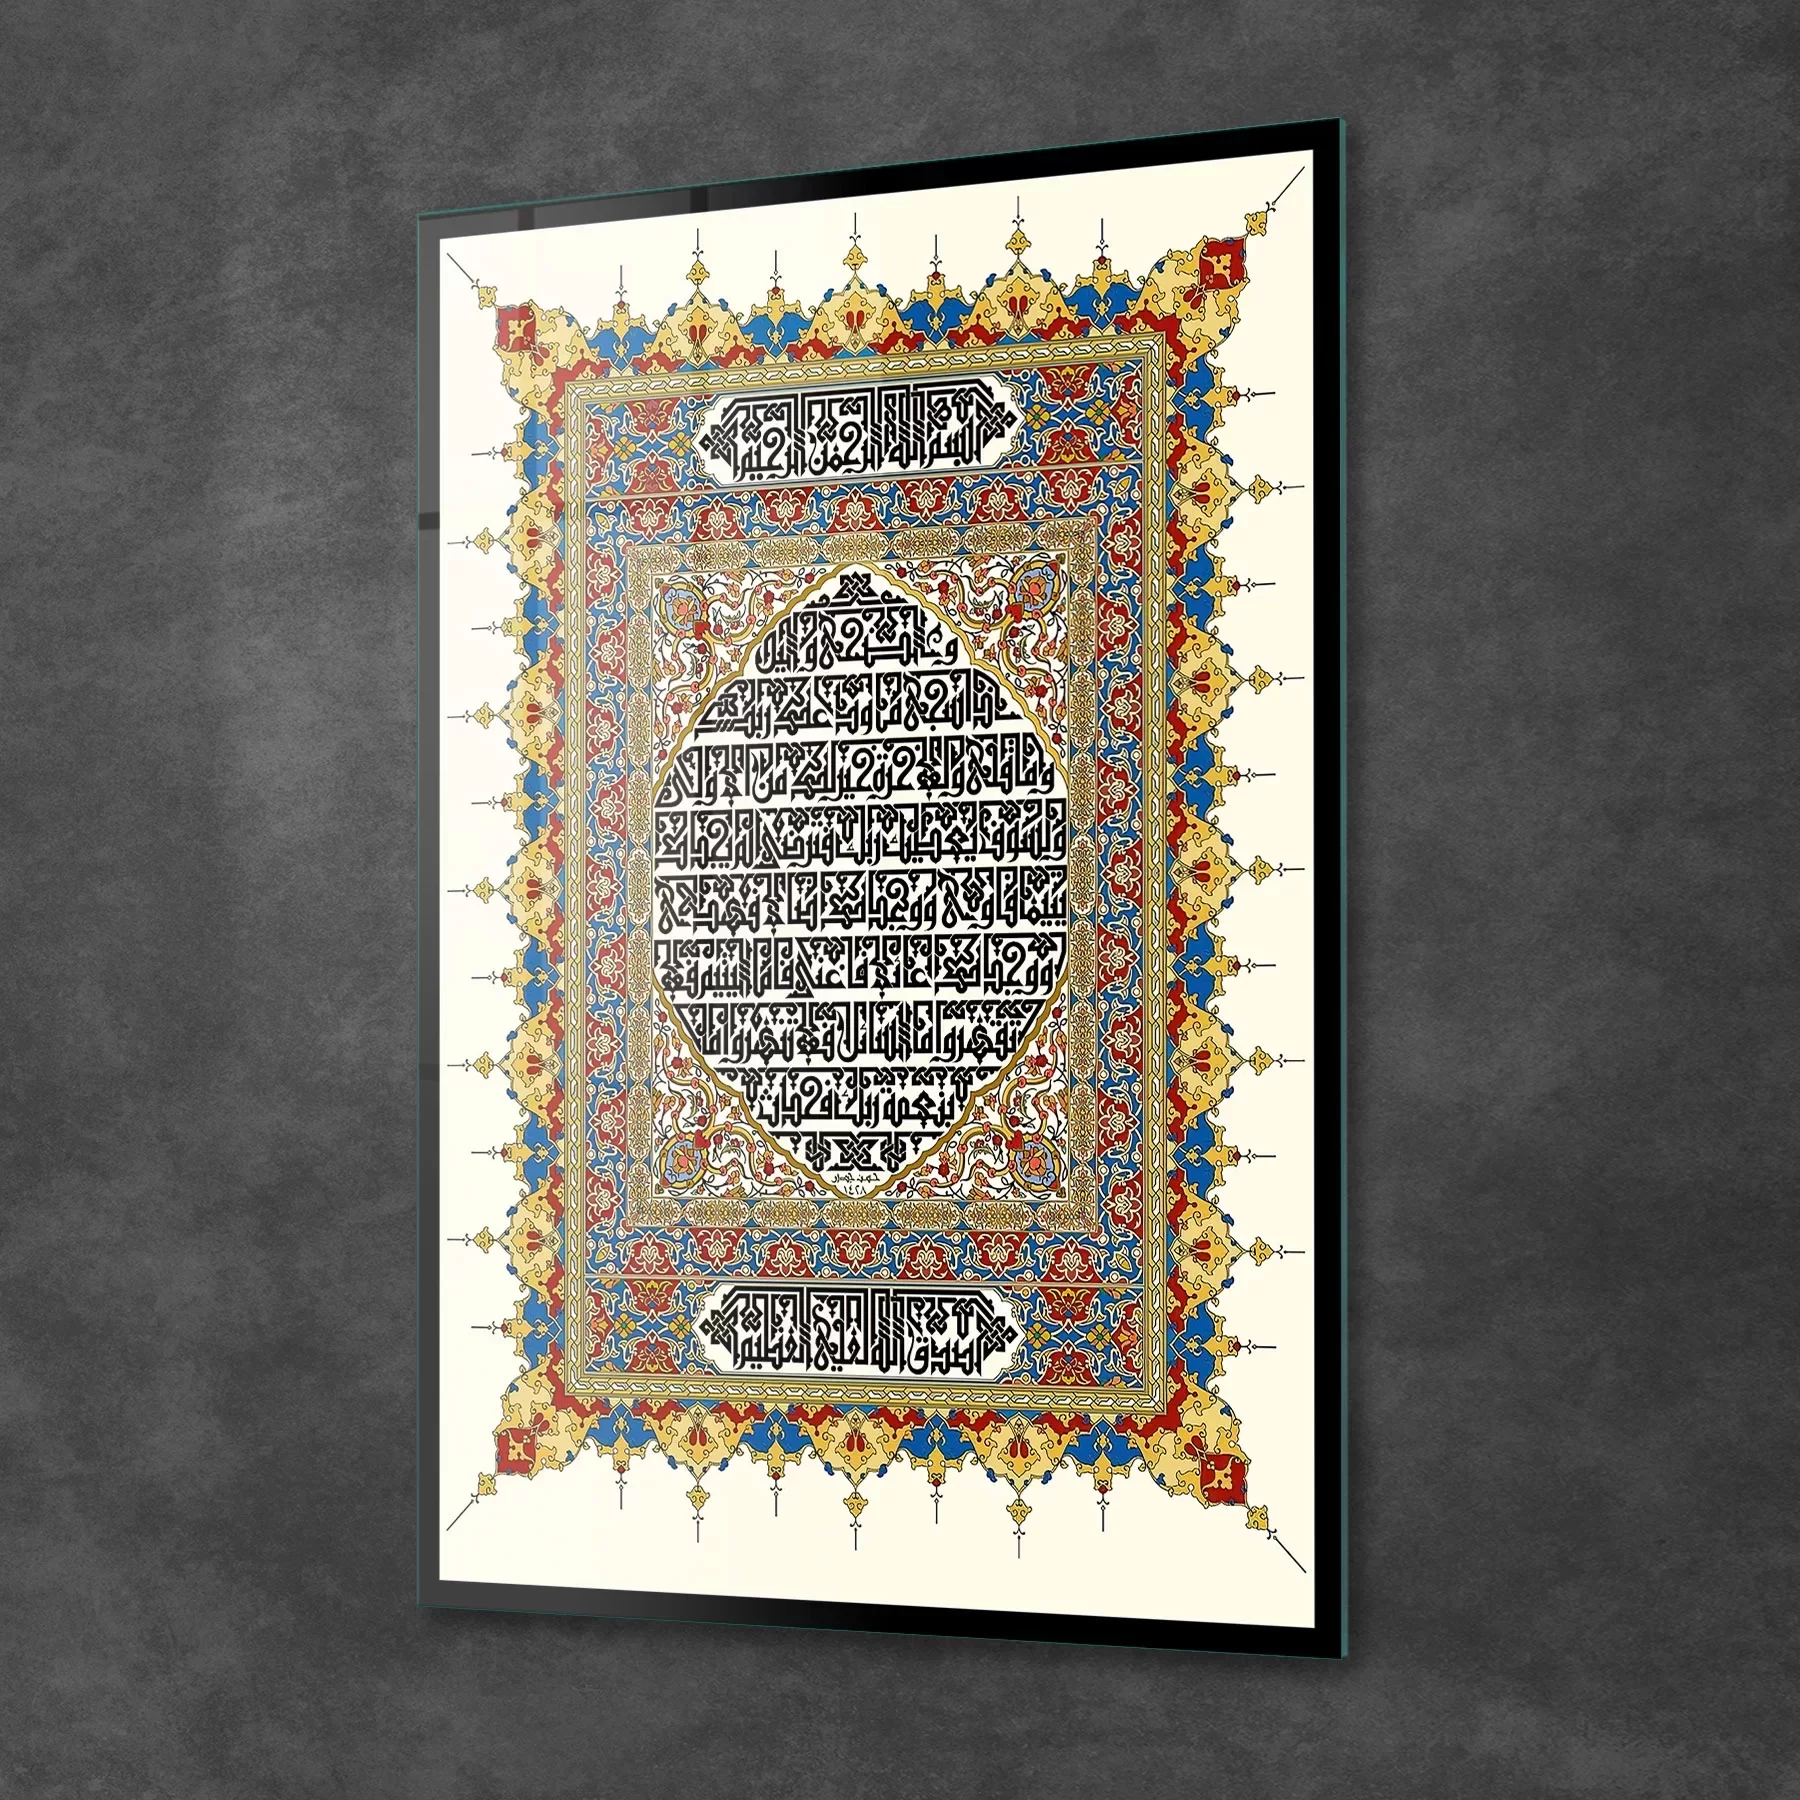 بسم الله الرحمن الرحيم
والضحى والليل
إذا سجى ما ودعك ربك
وما قلى وللآخرة خير لك من الأولى
ولسوف يعطيك ربك فترضى ألم يجدك
يتيما فآوى ووجدك ضالا فهدى
ووجدك عائلا فأغنى فأما اليتيم فلا
تقهر وأما السائل فلا تنهر وأما
بنعمة ربك فحدث
صدق الله العلي العظيم